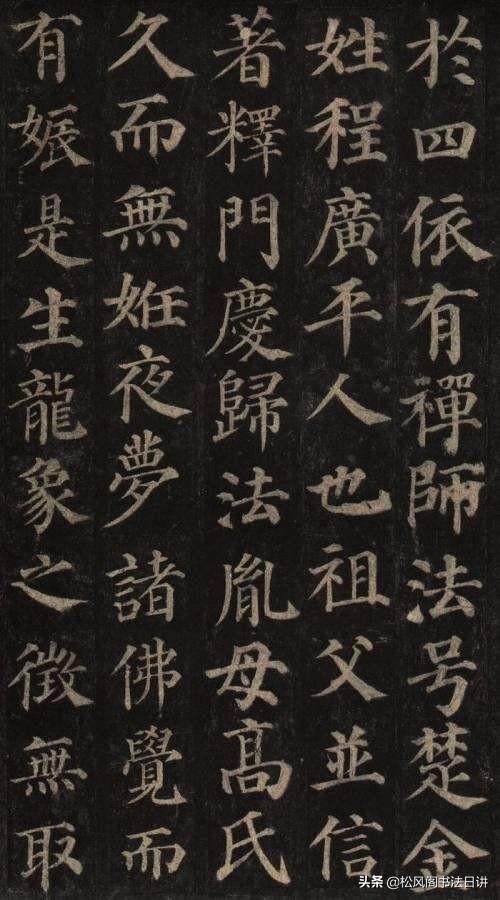 於四依有禪師法号楚金
姓程廣平人也祖父並信
著釋門慶歸法胤母高氏
久而無姙夜夢諸佛覺而
有娠是生龍象之徵無取
头条 @松风阁书法日讲